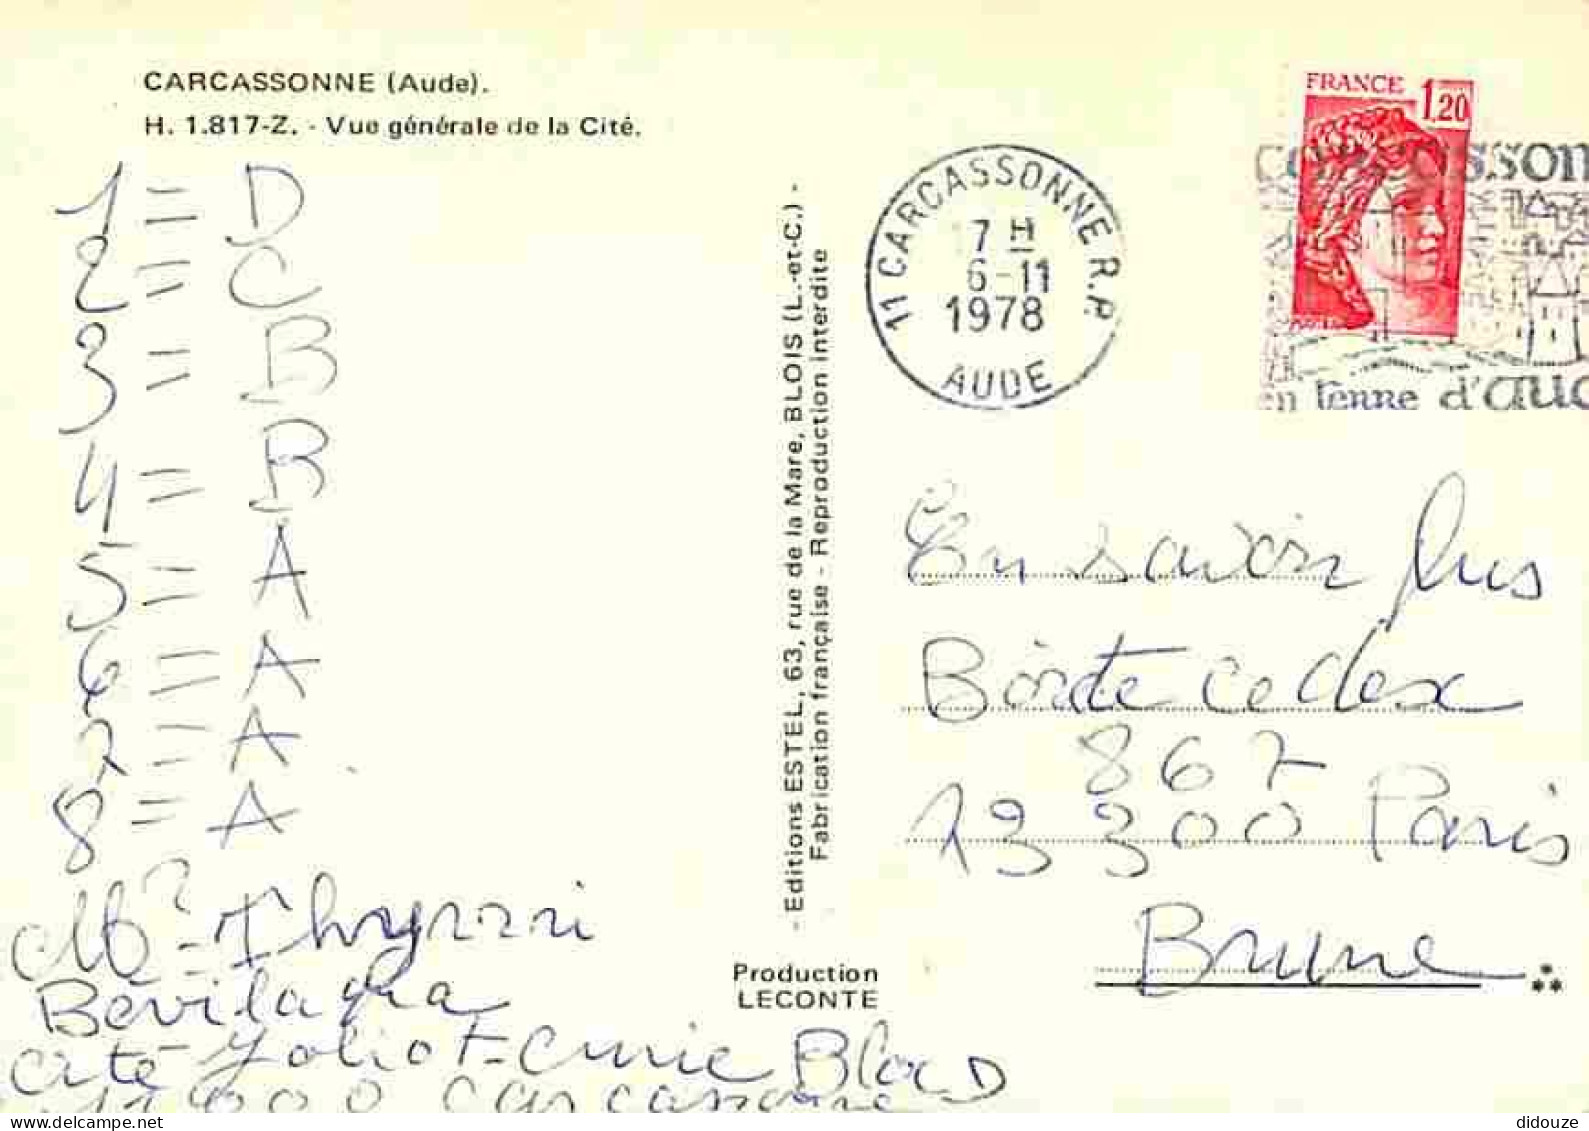 CARCASSONNE (Aude).
H. 1.817-Z. - Vue générale de la Cité.
1 = D
2 = C
3 = B
4 = B
5 = A
6 = A
7 = A
8 = A
Bevilaqua
cité Joliot-Curie Bloc D
11000 Carcassonne
- Editions ESTEL, 63, rue de la Mare, BLOIS (L.-et-C.) -
Fabrication française - Reproduction interdite
Production
LECONTE
11 CARCASSONNE R.P.
7 H
6-11
1978
AUDE
FRANCE 1,20
En savoir plus
Boîte cedex
867
13300 Paris
Brune
didouze